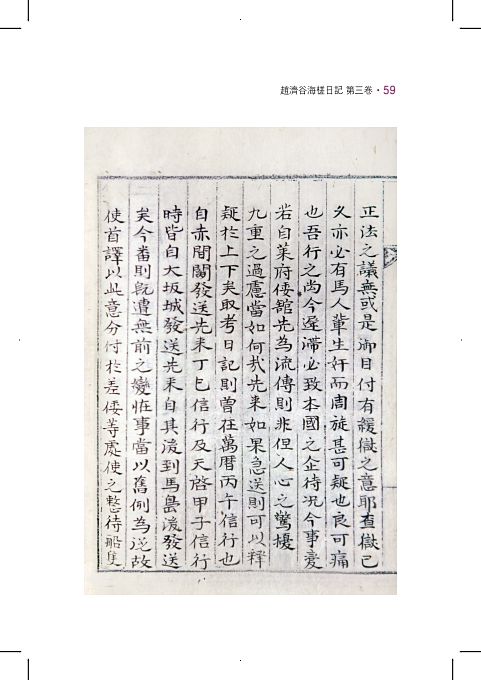 趙濟谷海槎日記 第三卷 • 59
正法之議無或是御目付有緩獄之意耶查獄已
久亦必有馬人輩生奸而周旋甚可疑也良可痛
也吾行之尚今遲滯必致本國之企待況今事變
若自萊府倭舘先為流傳則非但人心之驚擾
九重之過慮當如何哉先来如果急送則可以釋
疑於上下矣取考日記則曽在萬曆丙午信行也
自赤間關發送先来丁巳信行及天啓甲子信行
時皆自大坂城發送先来自其後到馬島後發送
矣今番則旣遭無前之變恠事當以舊例為送故
使首譯以此意分付於差倭等處使之整待船隻